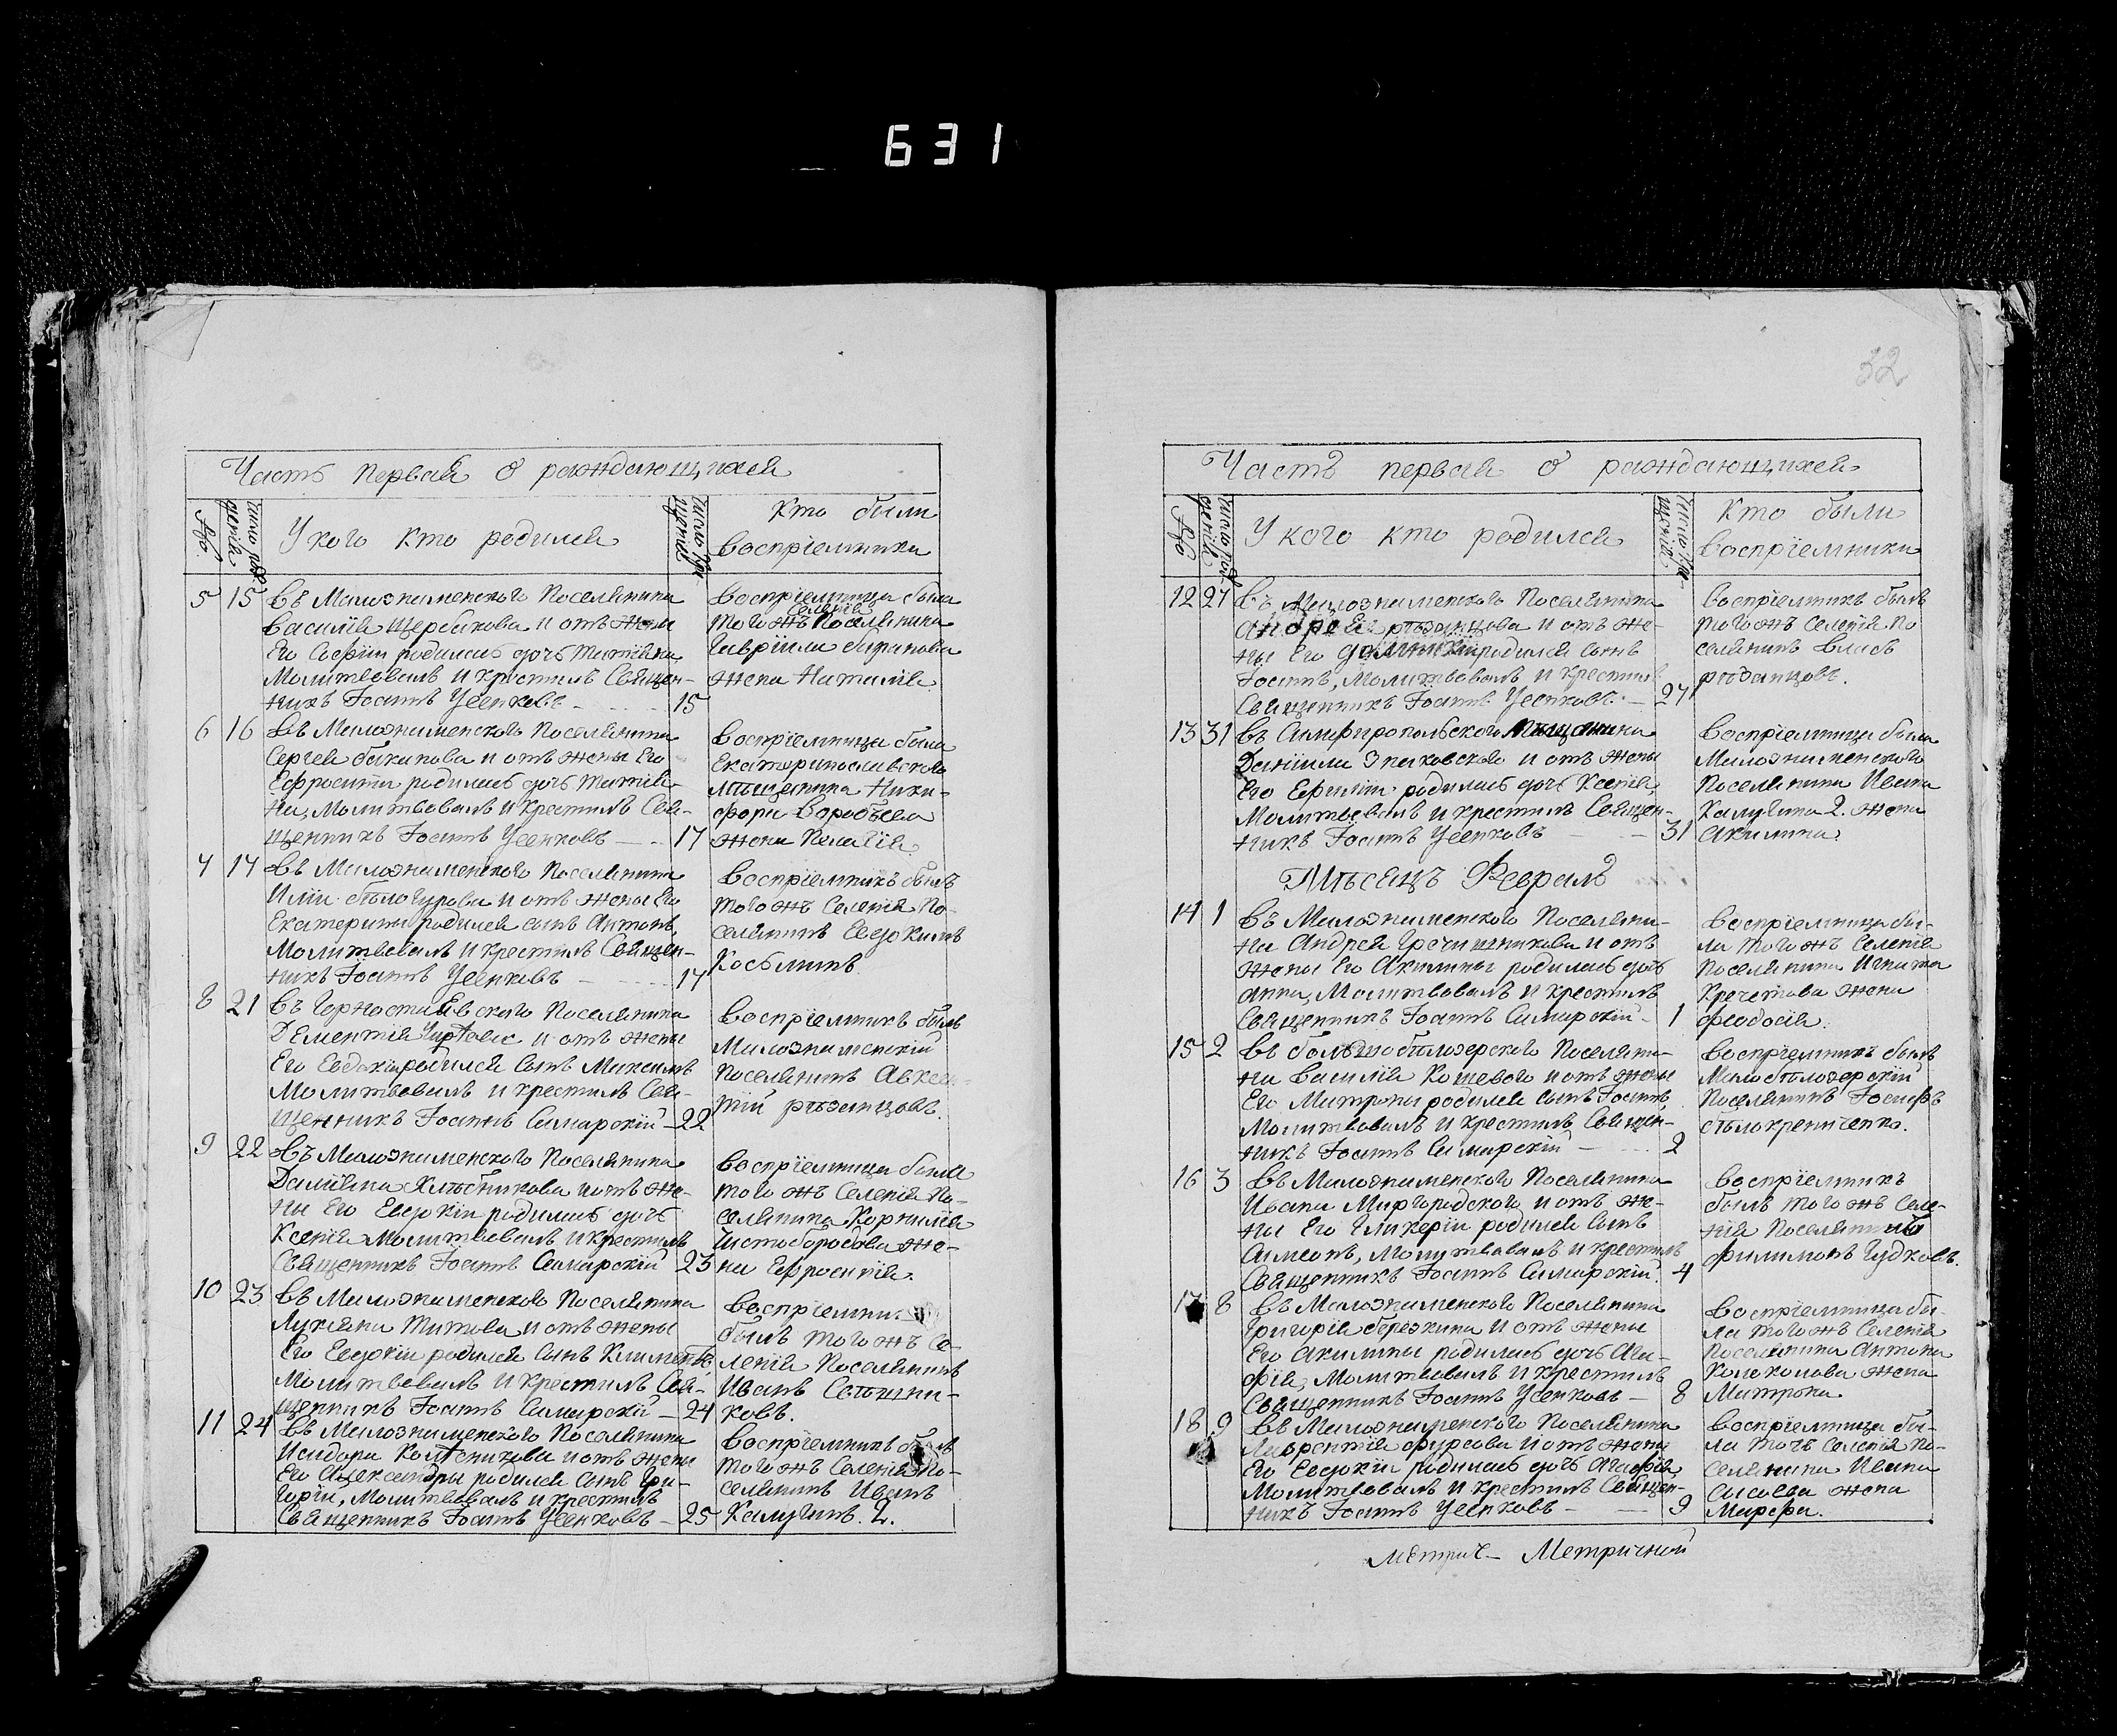 631
32
Часть первая о раждающихся
№
число рож
денія
У кого кто родился
число кре
щенія
Кто были
воспріемники
5 15 въ Малознаменского Поселянина
Василія Щербакова и отъ жены
Его Софіи родилась дочь Татіяна
Молитвовалъ и крестилъ Священ-
никъ Іоаннъ Усенковъ 15
воспріемница была
селенія
того жъ Поселянина
Гавріила баранова
жена Наталія
6 16 въ Малознаменского Поселянина
Сергея баканова и отъ жены Его
Ефросиніи родилась дочь Татія-
на, Молитвовалъ и крестилъ Свя-
щенникъ Іоаннъ Усенковъ 17
Воспріемница была
Екатеринославского
мѣщанина Ники-
фора Воробьева
жена Пелагія
7 17 въ Малознаменского Поселянина
Иліи бѣлогурова и отъ жены Его
Екатерины родился сынъ Антонъ,
Молитвовалъ и крестилъ Священ-
никъ Іоаннъ Усенковъ 17
Воспріемникъ былъ
того жъ Селенія По-
селянинъ Евдокимъ
8 21 въ Горностаевского Поселянина
Дементія и отъ жены
Его Евдокіи родился сынъ Максимъ
Молитвовалъ и крестилъ Свя-
щенникъ Іоаннъ Самарскій 22
Воспріемникъ былъ
Малознаменскій
поселянинъ Авксен-
тій рѣзанцовъ.
9 22 въ Малознаменского Поселянина
Даміяна Хлѣбникова и отъ же-
ны Его Евдокіи родилась дочь
Ксенія Молитвовалъ и крестилъ
Священникъ Іоаннъ Самарскій 23
Воспріемница была
того жъ Селенія По-
селянина Корнилія
Чистобородова же-
на Ефросинія.
10 23 въ Малознаменского Поселянина
Лукіяна Титова и отъ жены
Его Евдокіи родился сынъ Климентъ
Молитвовалъ и крестилъ Свя-
щенникъ Іоаннъ Самарскій 24
Воспріемни
былъ того жъ Се-
ленія Поселянинъ
Иванъ
ковъ.
11 24 въ Малознаменского Поселянина
Исидора Колесникова и отъ жены
Его Александры родился сынъ Гри-
горій, Молитвовалъ и крестилъ
Священникъ Іоаннъ Усенковъ 25
Воспріемникъ былъ
того жъ Селенія По-
селянинъ Иванъ
Калугинъ. 2.
Часть первая о раждающихся
№
число рож
денія
У кого кто родился
число кре
щенія
Кто были
воспріемники
12 27 въ Малознаменского Поселянина
Андрея рѣзанцова и отъ же-
ны Его родился сынъ
Іоаннъ, Молитвовалъ и крестилъ
Священникъ Іоаннъ Усенковъ. 27
воспріемникъ былъ
того жъ Селенія По
селянинъ Власъ
рѣзанцовъ.
13 31 въ Симферопольского Мѣщанина
Даніила и отъ жены
Его родилась дочь Ксенія,
Молитвовалъ и крестилъ Священ-
никъ Іоаннъ Усенковъ 31
воспріемница была
Малознаменского
Поселянина Ивана
Калугина 2. жена
Акилина.
Мѣсяцъ Февраль
14 1 въ Малознаменского Поселяни-
на Андрея Гречишникова и отъ
жены Его Акилины родилась дочь
Анна, Молитвовалъ и крестилъ
Священникъ Іоаннъ Самарскій 1
воспріемница бы-
ла того жъ Селенія
Поселянина Игната
Кречетова жена
феодосія.
15 2 въ большобѣлозерского Поселяни-
на Василія Кошевого и отъ жены
Его Матроны родился сынъ Іоаннъ,
Молитвовалъ и крестилъ Священ-
никъ Іоаннъ Самарскій 2
воспріемникъ былъ
Малобѣлозерскій
Поселянинъ Іосифъ
16 3 въ Малознаменского Поселянина
Ивана Миргородского и отъ же-
ны Его Гликеріи родился сынъ
Симеонъ, Молитвовалъ и крестилъ
Священникъ Іоаннъ Самарскій. 4
воспріемникъ
былъ того жъ Селе-
нія Поселянинъ
филимонъ Гудковъ.
17 8 въ Малознаменского Поселянина
Григорія березкина и отъ жены
Его Акилины родилась дочь Ага-
фія, Молитвовалъ и крестилъ
Священникъ Іоаннъ Усенковъ 8
воспріемница бы-
ла того жъ Селенія
Поселянина Антона
Конокопова жена
Матрона.
18 9 въ Малознаменского Поселянина
Лаврентія фурсова и отъ жены
Его Евдокіи родилась дочь Агафія,
Молитвовалъ и крестилъ Священ-
никъ Іоаннъ Усенковъ 9
воспріемница бы-
ла тогъ Селенія По-
селянина Ивана
Сысоева жена
Марфа.
Метрич- Метричной